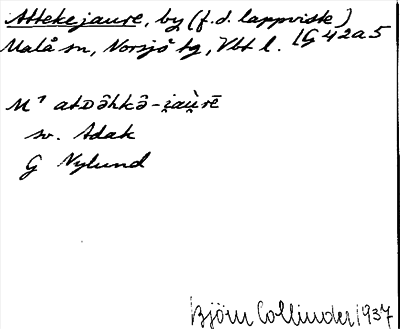 Attekejaure, by (f.d. lappviste)
Malå sn, Norsjö tg, Vbt l. /G 42a5
M¹ atDəhkə̑-i̯au̯rē
sv. Adak
G Nylund
Björn Collinder 1937